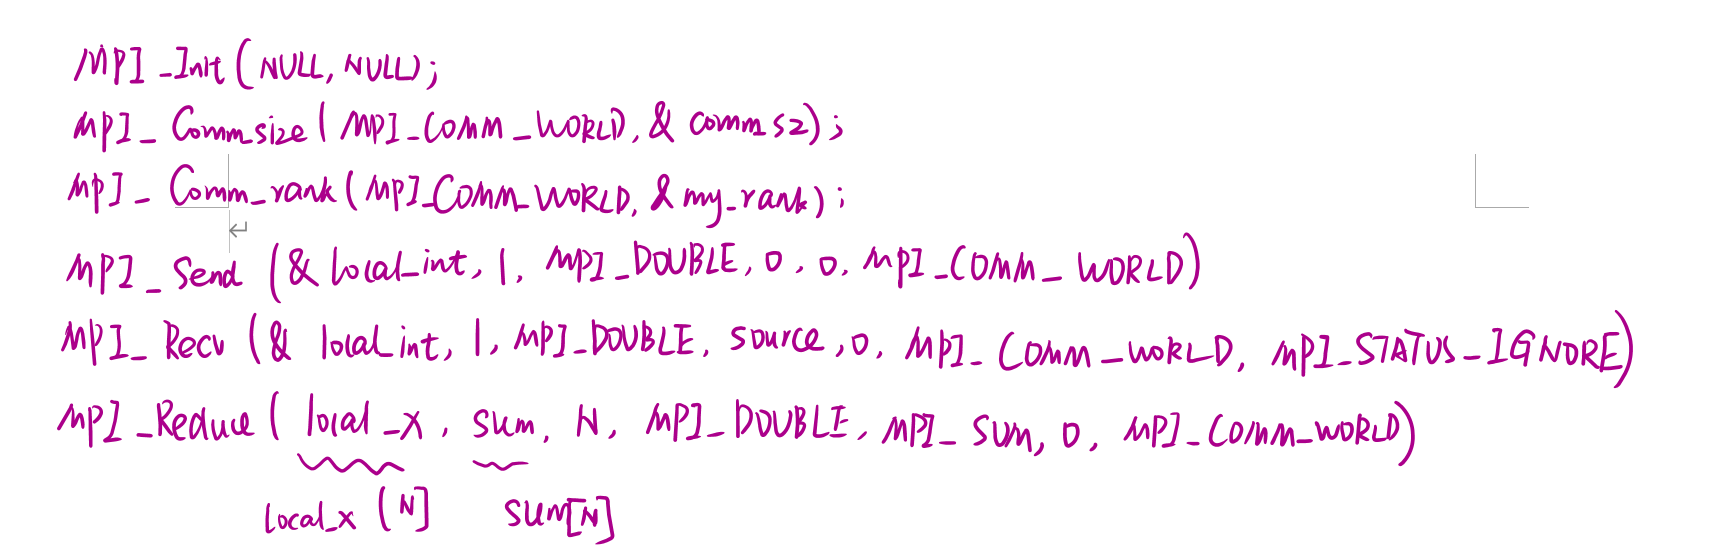 MPI_Init(NULL, NULL);
MPI_Comm_size(MPI_COMM_WORLD, &comm_sz);
MPI_Comm_rank(MPI_COMM_WORLD, &my_rank);
MPI_Send(&local_int, 1, MPI_DOUBLE, 0, 0, MPI_COMM_WORLD)
MPI_Recv(&local_int, 1, MPI_DOUBLE, source, 0, MPI_COMM_WORLD, MPI_STATUS_IGNORE)
MPI_Reduce(local_x, sum, N, MPI_DOUBLE, MPI_SUM, 0, MPI_COMM_WORLD)
local_x[N] sum[N]